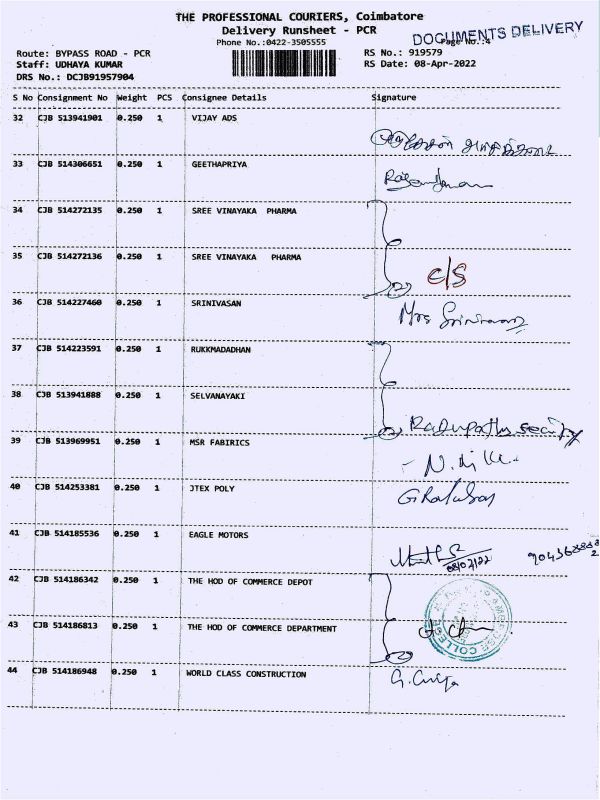 THE PROFESSIONAL COURIERS, Coimbatore
Delivery Runsheet - PCR
DOCUMENTS DELIVERY
Phone No.:0422-3505555
Page No.:4
Route: BYPASS ROAD - PCR
RS No.: 919579
Staff: UDHAYA KUMAR
RS Date: 08-Apr-2022
DRS No.: DCJB91957904
S No Consignment No Weight PCS Consignee Details Signature
32 CJB 513941901 0.250 1 VIJAY ADS
33 CJB 514306651 0.250 1 GEETHAPRIYA
34 CJB 514272135 0.250 1 SREE VINAYAKA PHARMA
35 CJB 514272136 0.250 1 SREE VINAYAKA PHARMA
c/s
36 CJB 514227460 0.250 1 SRINIVASAN
Mrs Srinivasan
37 CJB 514223591 0.250 1 RUKKMADADHAN
38 CJB 513941888 0.250 1 SELVANAYAKI
39 CJB 513969951 0.250 1 MSR FABIRICS
40 CJB 514253381 0.250 1 JTEX POLY
41 CJB 514185536 0.250 1 EAGLE MOTORS
42 CJB 514186342 0.250 1 THE HOD OF COMMERCE DEPOT
43 CJB 514186813 0.250 1 THE HOD OF COMMERCE DEPARTMENT
44 CJB 514186948 0.250 1 WORLD CLASS CONSTRUCTION